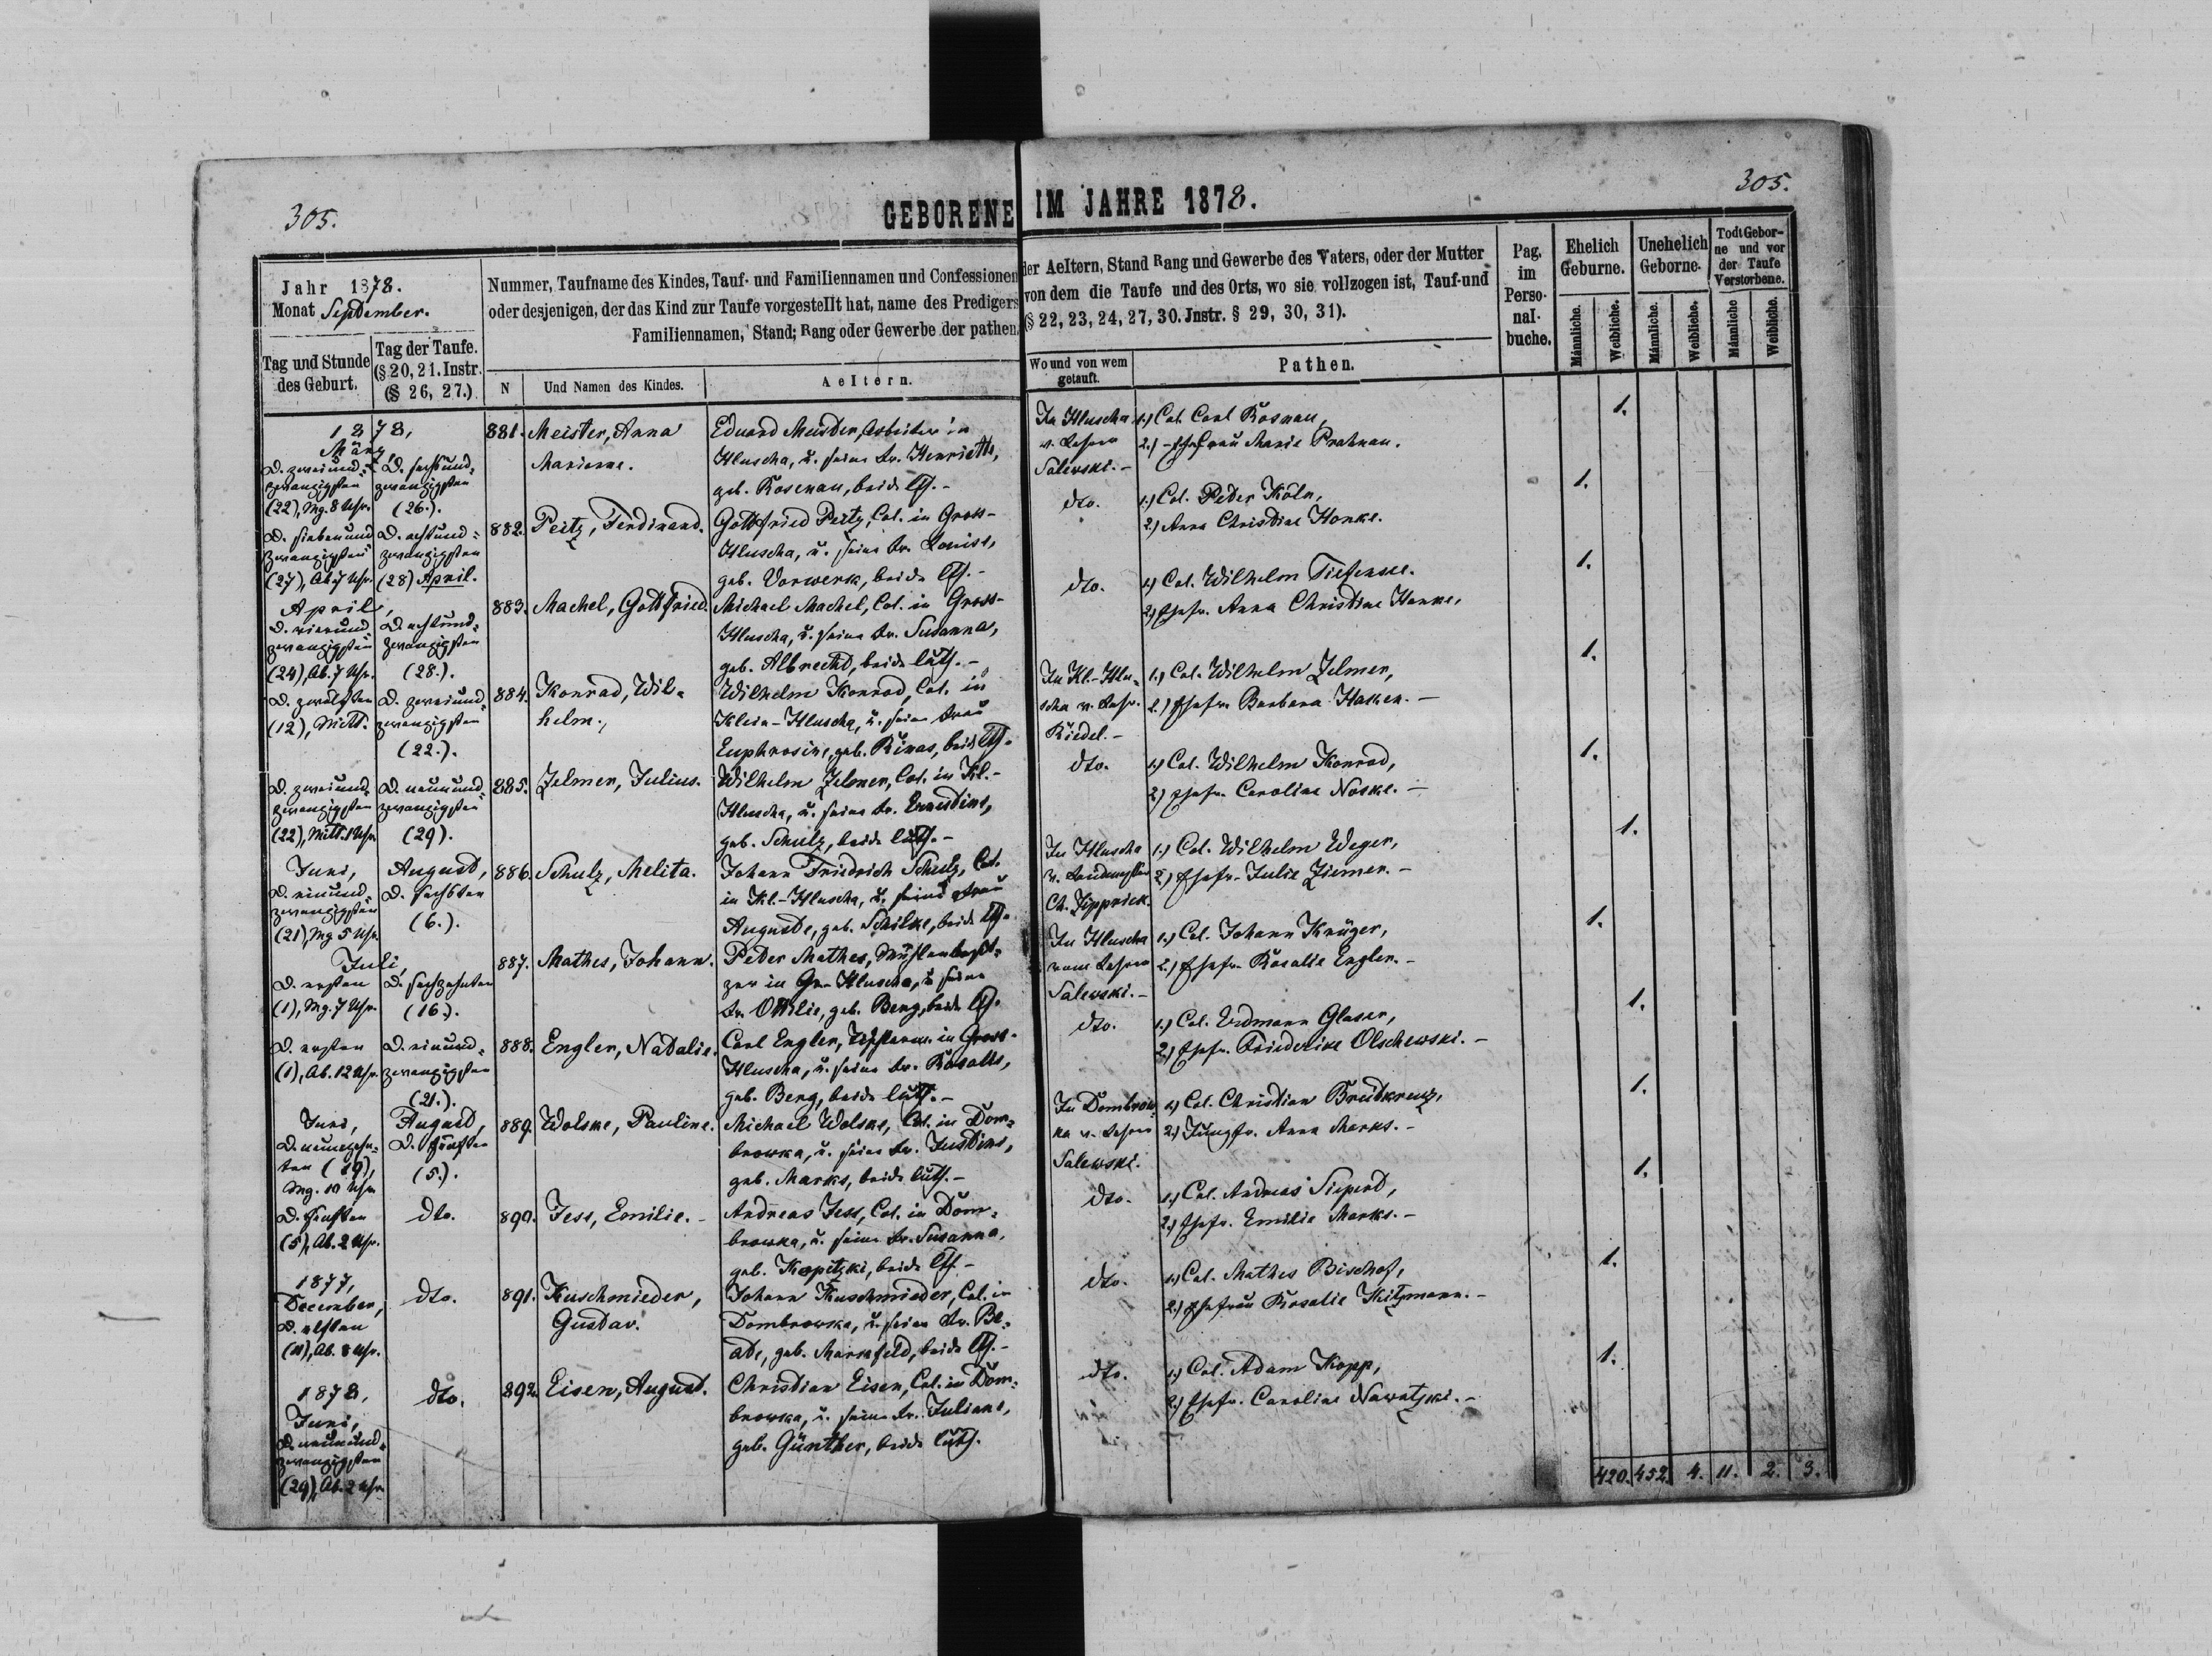 305.
GEBORENE IM JAHRE 1878.
305.
Jahr 1878.
Monat September.
Tag und Stunde des Geburt.
Tag der Taufe. (§ 20, 21. Instr. (§ 26, 27.)
Nummer, Taufname des Kindes, Tauf- und Familiennamen und Confessionen der Aeltern, Stand Rang und Gewerbe des Vaters, oder der Mutter
oder desjenigen, der das Kind zur Taufe vorgestellt hat, name des Predigers von dem die Taufe und des Orts, wo sie vollzogen ist, Tauf-und
Familiennamen, Stand; Rang oder Gewerbe der pathen. (§ 22, 23, 24, 27, 30. Jnstr. § 29, 30, 31).
N
Und Namen des Kindes.
Aeltern.
Wo und von wem getauft.
Pathen.
Pag. im Perso- nal- buche.
Ehelich Geburne.
Unehelich Geborne.
Todt Gebor- ne und vor der Taufe Verstorbene.
Männliche. Weibliche. Männliche. Weibliche. Männliche Weibliche.
1878,
März
D. zweiund-
zwanzigsten
(22), Mg. 8 Uhr.
D. sechsund-
zwanzigsten
(26.).
881. Meister, Anna
Marianne.
Eduard Meister, Arbeiter in
Hluscha, u. seine Fr. Henriette,
geb. Rosenau, beide lth. -
In Hluscha
v. Lehrer
Salewski. -
1.) Col. Carl Rosnau,
2.) Ehefrau Marie Pratnau.
1.
D. siebenund
zwanzigsten
(27), Ab. 7 Uhr.
D. achtund-
zwanzigsten
(28) April.
882. Peitz, Ferdinand.
Gottfried Peitz, Col. in Gross-
Hluscha, u. seine Fr. Louise,
geb. Vorwerk, beide lth. -
dto.
1.) Col. Peter Köln,
2.) Anna Christine Honke.
1.
April,
D. vierund
zwanzigsten
(24), Ab. 7 Uhr.
D. achtund-
zwanzigsten
(28.).
883. Machel, Gottfried.
Michael Machel, Col. in Gross-
Hluscha, u. seine Fr. Susanna,
geb. Albrecht, beide luth. -
dto.
1.) Col. Wilhelm Tiefensee.
2.) Ehefr. Anna Christine Honke.
1.
D. zwölften
(12), Mitt.
D. zweiund-
zwanzigsten
(22.).
884. Konrad, Wil-
helm.
Wilhelm Konrad, Col. in
Klein-Hluscha, u. seine Frau
Euphrosine, geb. Rinas, beide lth.
In Kl.-Hlu-
scha v. Lehr.
Riedel. -
1.) Col. Wilhelm Zelmer,
2.) Ehefr. Barbara Hasken. -
1.
D. zweiund-
zwanzigsten
(22), Mitt. 1 Uhr
D. neunund-
zwanzigsten
(29).
885. Zelmer, Julius.
Wilhelm Zelmer, Col. in Kl.-
Hluscha, u. seine Fr. Ernestine,
geb. Schulz, beide luth. -
dto.
1.) Col. Wilhelm Konrad,
2.) Ehefr. Caroline Noske. -
1.
Juni,
D. einund-
zwanzigsten
(21), Mg 5 Uhr.
August,
D. sechsten
(6.).
886. Schulz, Melita.
Johann Friedrich Schulz, Col.
in Kl.-Hluscha, u. seine Frau
Auguste, geb. Schilke, beide lth.
In Hluscha
Ch. Zipprick.
1.) Col. Wilhelm Weger,
2.) Ehefr. Julie Ziemer. -
1.
Juli,
D. ersten
(1), Mg. 7 Uhr.
D. sechzehnten
(16.).
887. Mathes, Johann.
Peter Mathes, Mühlenbesit-
zer in Gr. Hluscha, u. seine
Fr. Ottilie, geb. Berg, beide lth.
In Hluscha
vom Lehrer
Salewski. -
1.) Col. Johann Krüger,
2.) Ehefr. Rosalie Engler. -
1.
D. ersten
(1), Ab. 12 Uhr.
D. einund-
zwanzigsten
(21.).
888. Engler, Natalie.
Carl Engler, in Gross-
Hluscha, u. seine Fr. Rosalie,
geb. Berg, beide luth. -
dto.
1.) Col. Erdmann Glaser,
2.) Ehefr. Friederike Olschewski. -
1.
Juni,
D. neunzehn-
ten (19),
Mg. 10 Uhr
August,
D. fünften
(5.).
889. Wolske, Pauline.
Michael Wolske, Col. in Dom-
browka, u. seine Fr. Justine,
geb. Marks, beide luth. -
In Dombrow-
ka v. Lehrer
Salewski.
1.) Col. Christian Breitkreuz,
2.) Jungfr. Anna Marks. -
1.
D. fünften
(5), Ab. 2 Uhr.
dto.
890. Jess, Emilie. -
Andreas Jess, Col. in Dom-
browka, u. seine Fr. Susanna,
geb. Kopitzki, beide lth. -
dto.
1.) Col. Andreas Siepert,
2.) Ehefr. Emilie Marks. -
1.
1877,
December,
D. elften
(11), Ab. 8 Uhr.
dto.
891. Kuschmieder,
Gustav.
Johann Kuschmieder, Col. in
Dombrowka, u. seine Fr. Be-
ate, geb. Marksfeld, beide lth. -
dto.
1.) Col. Mathes Bischof,
2.) Ehefrau Rosalie Kitzmann. -
1.
1878,
Juni,
D. neunund-
zwanzigsten
(29), Ab. 2 Uhr
dto.
892. Eisen, August.
Christian Eisen, Col. in Dom-
browka, u. seine Fr. Juliane,
geb. Günther, beide luth.
dto.
1.) Col. Adam Kopp,
2.) Ehefr. Caroline Nawatzki. -
1.
420. 452. 4. 11. 2. 3.